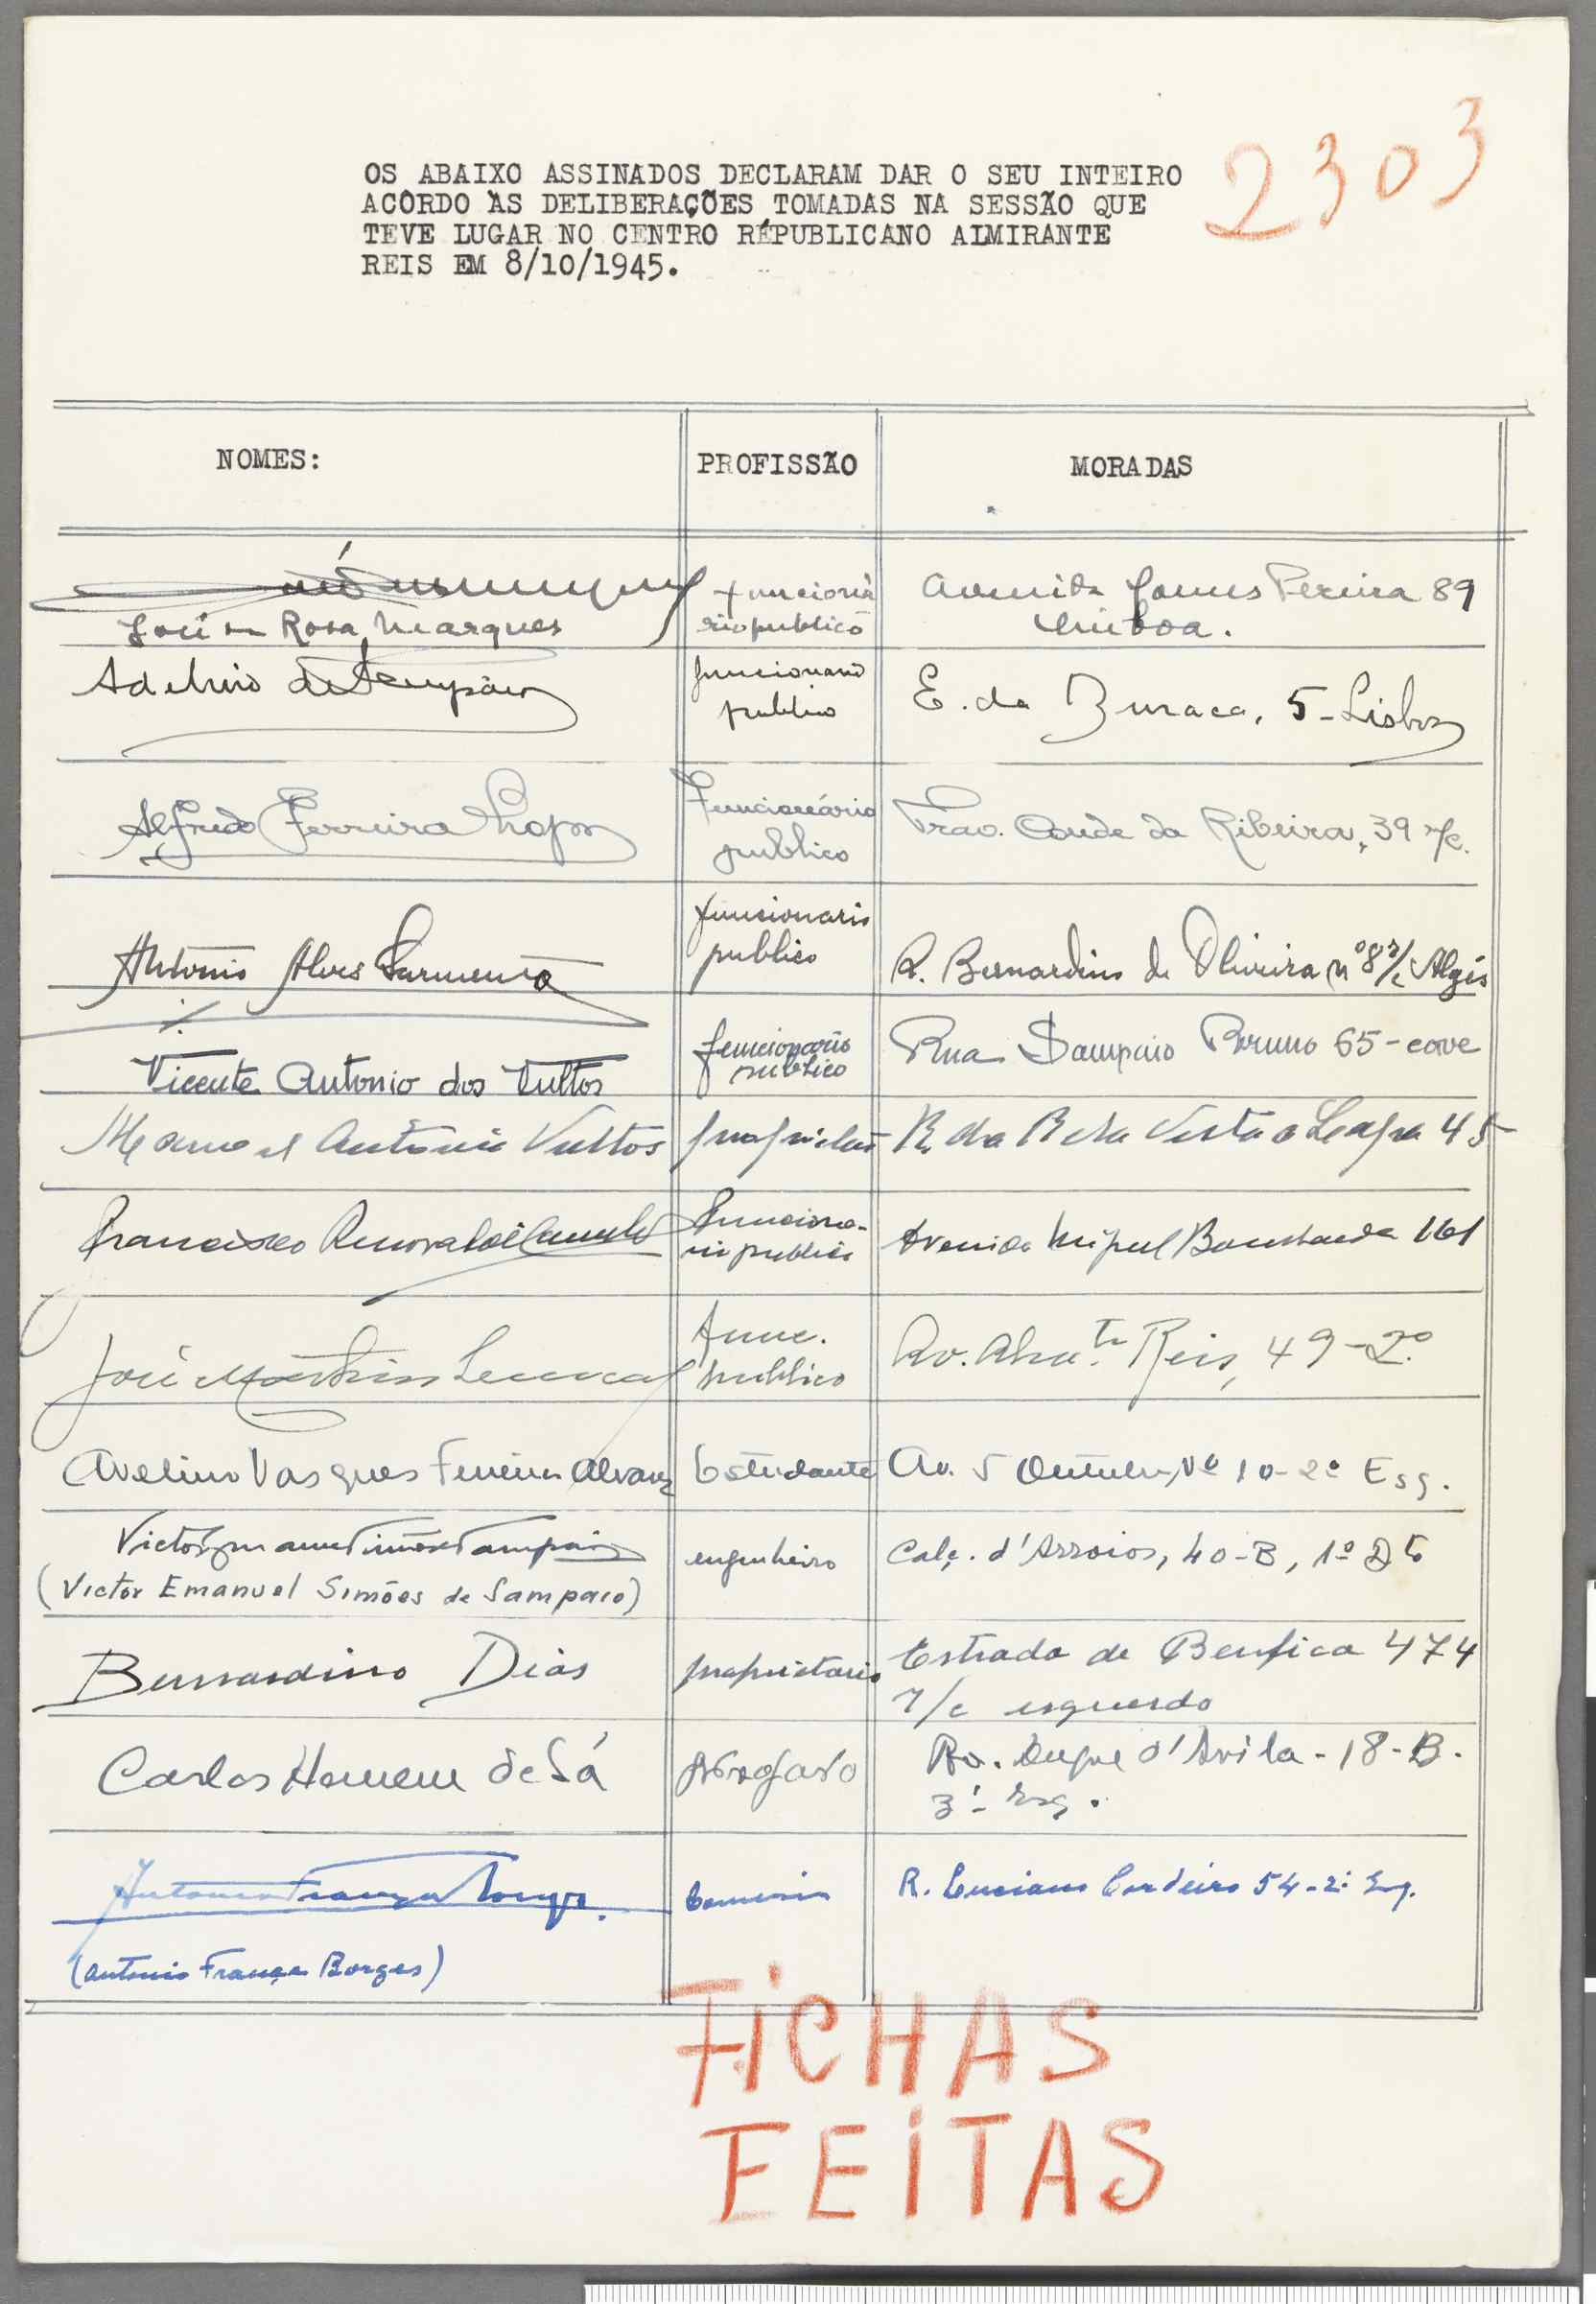 2303
OS ABAIXO ASSINADOS DECLARAM DAR O SEU INTEIRO
ACÔRDO ÀS DELIBERAÇÕES TOMADAS NA SESSÃO QUE
TEVE LUGAR NO CENTRO REPUBLICANO ALMIRANTE
REIS EM 8/10/1945.
NOMES: PROFISSÃO MORADAS
funcioná Avenida Gomes Pereira 89
José Rosa Marques rio publico Lisboa.
Adelino funcionario E. da Buraca, 5-Lisboa
publico
Alfredo Ferreira Lopes Funcionário Trav. Conde da Ribeira, 39 r/c.
publico
funcionario
António Alves Sarmento publico R. Bernardino de Oliveira nº 8 r/c Algés
funcionario Rua Sampaio Bruno 65-cave
Vicente Antonio dos Vultos publico
Manuel António Vultos R. da Bela Vista a Lapa 45
Francisco Funcioná-
rio publico Avenida Miguel Bombarda 161
José Martins func. Av. Almte Reis, 49-2º
publico
Avelino Vasques Ferreira Alvarez Estudante Av. 5 Outubro, Nº 10-2º Esq.
Victor Emanuel Simões Sampaio engenheiro Calç. d'Arroios, 40-B, 1º Dto
(Victor Emanuel Simões de Sampaio)
Bernardino Dias proprietario Estrada de Benfica 474
r/c esquerdo
Carlos Homem de Sá advogado Av. Duque d'Avila-18-B.
3º- Esq.
Antonio França Borges. Comercio R. Luciano Cordeiro 54-2º Esq.
(Antonio França Borges)
FICHAS
FEITAS